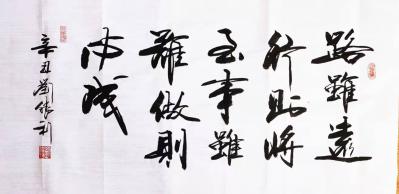 路雖遠
行則將
至事雖
難做則
必成
辛丑劉俊利